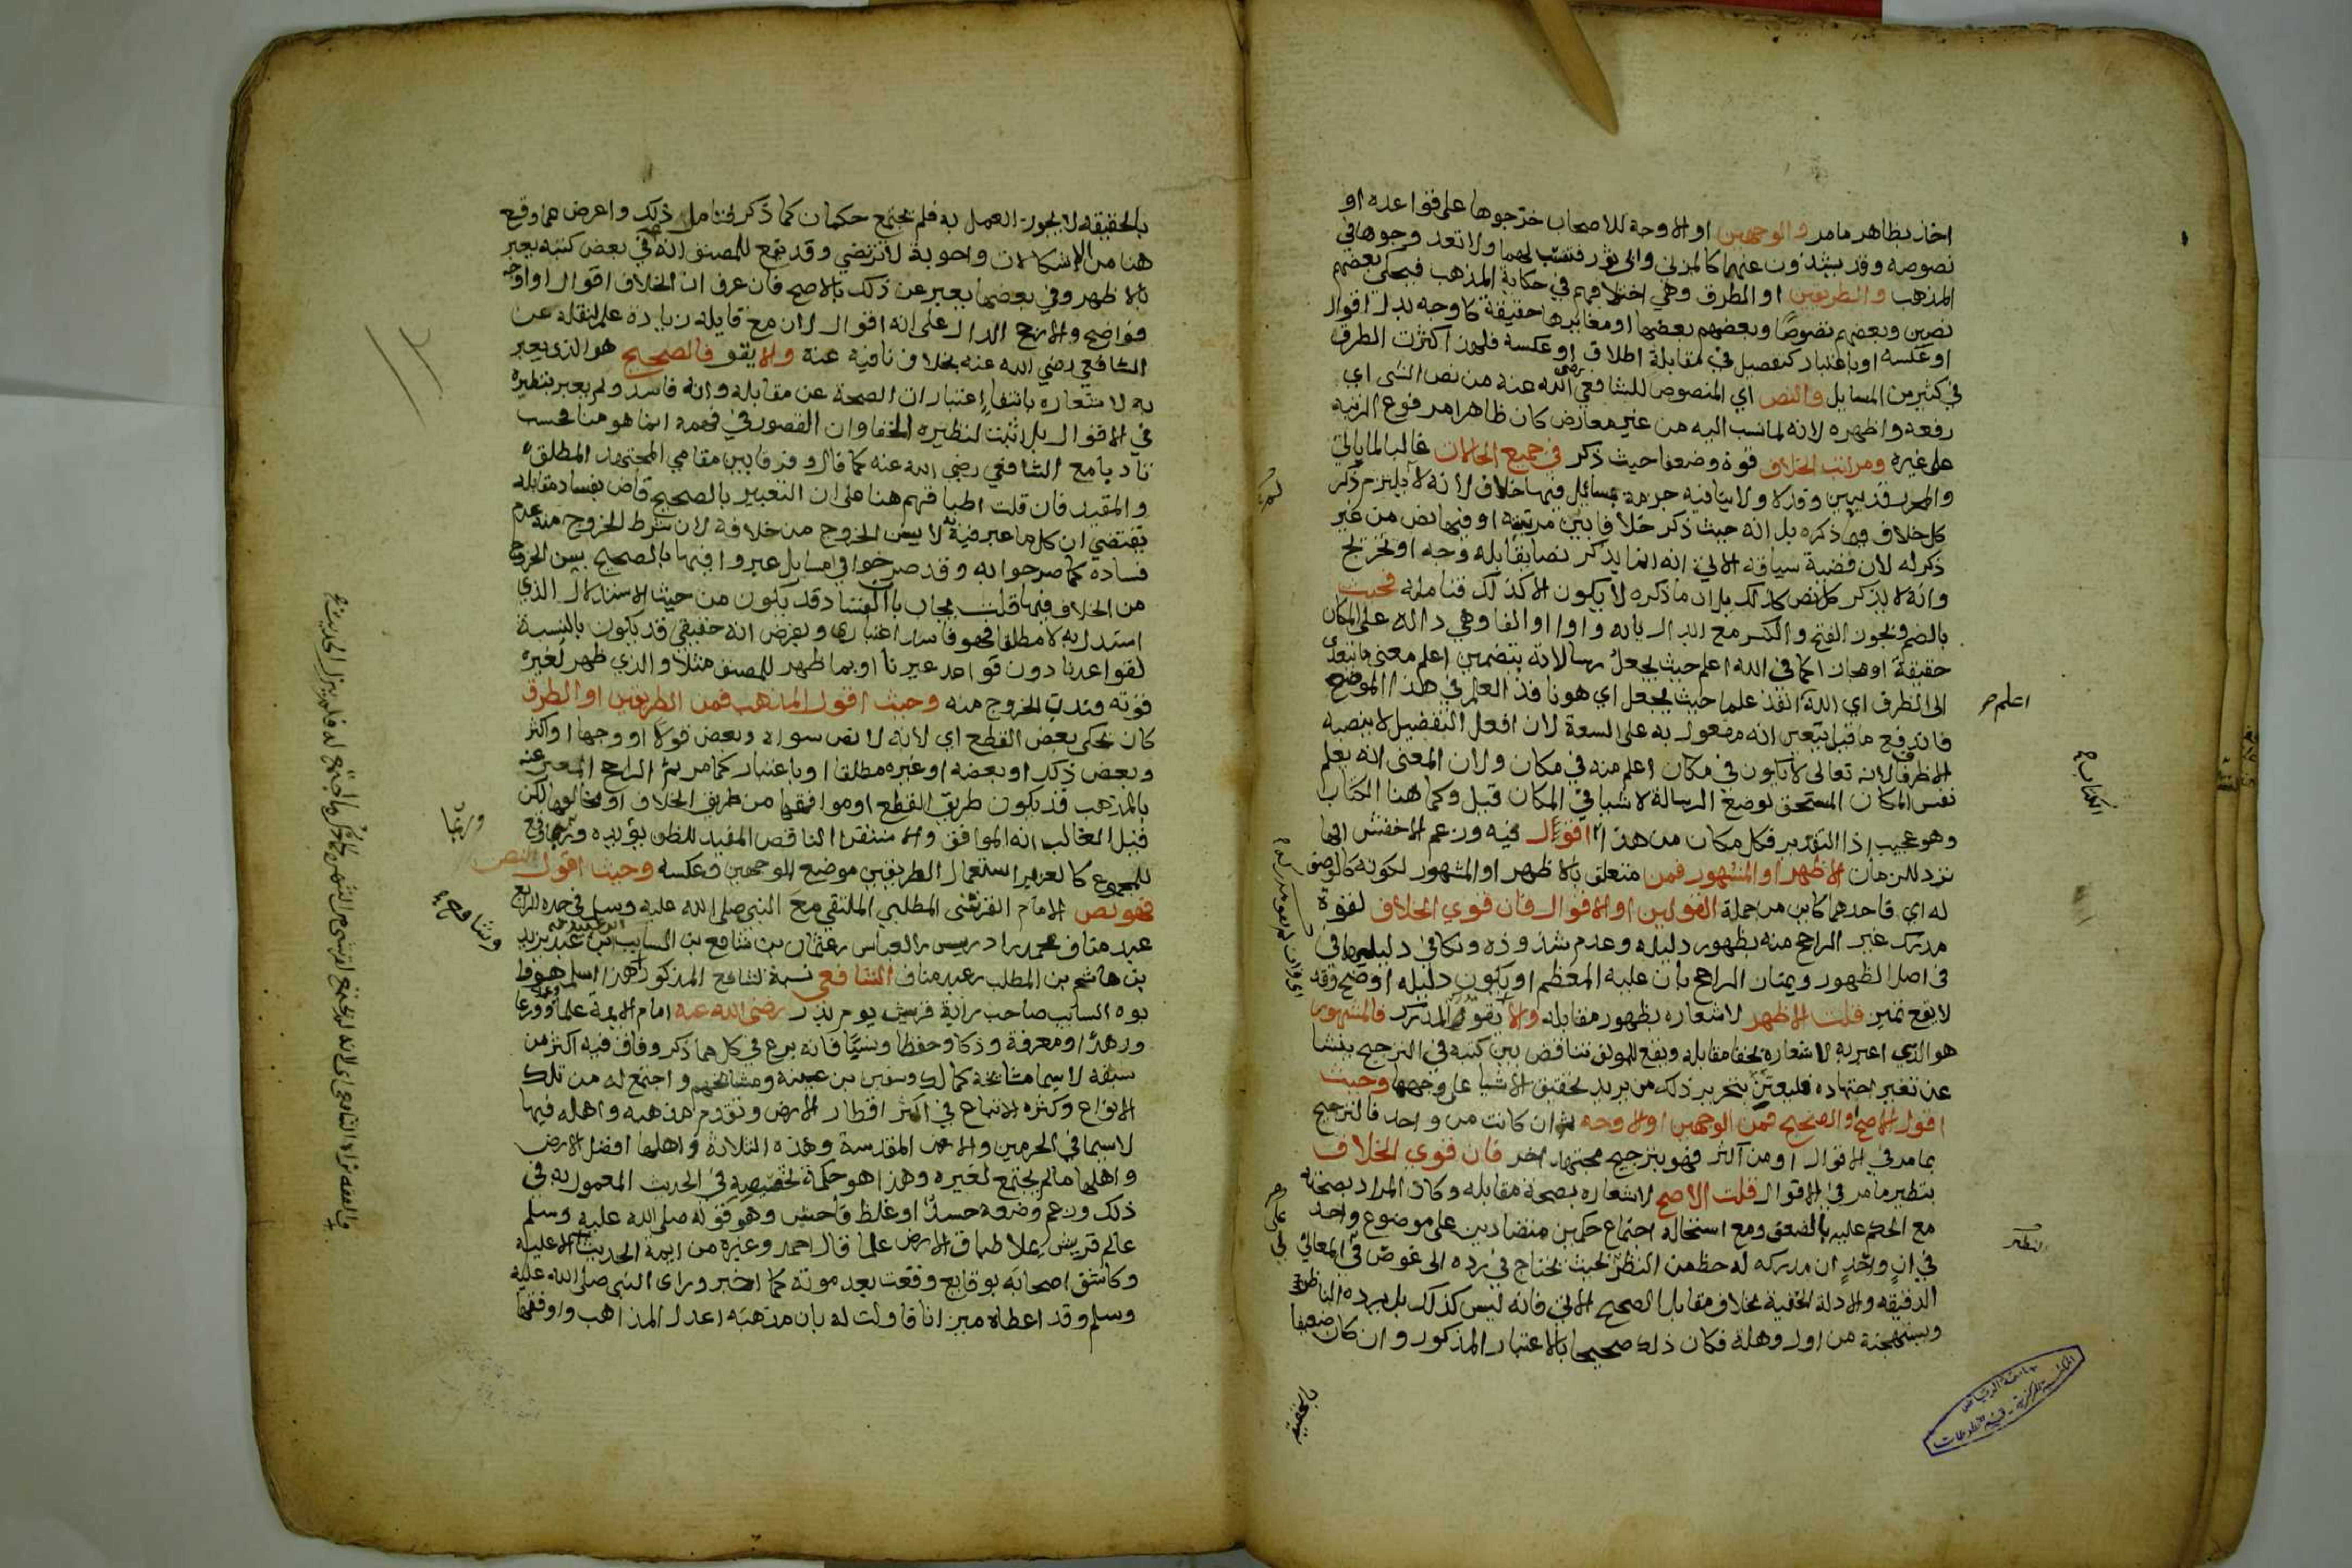 اخذ بظاهر ما مر والوجهين او الاوجه للاصحاب خرجوها على قواعده او
نصوصه وقد يشذون عنهما كالمزني وابي ثور فتنسب لهما ولا تعد وجوها في
المذهب والطريقين او الطرق وهي اختلافهم في حكاية المذهب فيحكي بعضهم
نصين وبعضهم نصوصا وبعضهم بعضها او مغايرها حقيقة كاوجه بدل اقوال
او عكسه او باعتبار كتفصيل في مقابلة اطلاق او عكسه فلهذا كثرت الطرق
في كثير من المسايل والنص اي المنصوص للشافعي رضي الله عنه من نص الشي اي
رفعه واظهره لانه لما نسب اليه من غير معارض كان ظاهرا مرفوع الرتبة
على غيره ومراتب الخلاف قوة وضعفا حيث ذكر في جميع الحالات غالبا لما ياتي
كل خلاف ذكره بل انه حيث ذكر خلافا بين مرتبته او فيها نص من غير
ذكر له لان قضية سياقه الاتي انه انما يذكر نصا يقابله وجه او تخريج
وانه لا يذكر كل نص كذلك بل ان ما ذكره لا يكون الا كذلك فتامله فحيث
بالضم ويجوز الفتح والكسر مع ابدال يائه واوا او الفا وهي دالة على المكان
حقيقة او مجازا كما في الله اعلم حيث يجعل رسالاته بتضمين اعلم معنى ما يتعدى
الى الظرف اي الله انفذ علما حيث يجعل اي هو نافذ العلم في هذا الموضع
فاندفع ما قيل يتعين انه مفعول به على السعة لان افعل التفضيل لا ينصبه
لا الظرف لانه تعالى لا يكون في مكان اعلم منه في مكان ولان المعنى انه يعلم
نفس المكان المستحق لوضع الرسالة لا شيا في المكان قيل وكما هنا الكتاب
وهو عجيب اذ التقدير فكل مكان من هذا اقول فيه وزعم الاخفش انها
ترد للزمان الاظهر او المشهور فمن متعلق بالاظهر او المشهور لكونه كالوصف
له اي فاحدهما كاين من جملة القولين او الاقوال فان قوي الخلاف لقوة
مدرك غير الراجح منه بظهور دليله وعدم شذوذه وتكافي دليليهما في
في اصل الظهور ويمتاز الراجح بان عليه المعظم او يكون دليله اوضح وقد
لا يقع تميز قلت الاظهر لاشعاره بظهور مقابله والا يقوى المدرك فالمشهور
هو الذي اعبر به لاشعاره بخفا مقابله ويقع للمولف تناقض بين كتبه في الترجيح ينشا
عن تغير اجتهاده فليعتن بتحرير ذلك من يريد تحقيق الاشيا على وجهها وحيث
اقول الاصح او الصحيح فمن الوجهين او الاوجه ثم ان كانت من واحد فالترجيح
بما مر في الاقوال او من اكثر فهو بترجيح مجتهد اخر فان قوي الخلاف
بنظير ما مر في الاقوال قلت الاصح لاشعاره بصحة مقابله وكان المراد بصحته
مع الحكم عليه بالضعف ومع استحالة اجتماع حكمين متضادين على موضوع واحد
في آن واحد ان مدركه له حظ من النظر بحيث يحتاج في رده الى غوص في المعاني
الدقيقة والادلة الخفية بخلاف مقابل الصحيح الاتي فانه ليس كذلك بل يرده الناظر
ويستهجنه من اول وهلة فكان ذلك صحيحا بالاعتبار المذكور وان كان ضعيفا
اعلم
الكتاب
النظر
بالحقيقة لا يجوز العمل به فلم يجتمع حكمان كما ذكر فتامل ذلك واعرض عما وقع
هنا من الاشكالات واجوبة لا ترتضي وقد يقع للمصنف انه في بعض كتبه يعبر
بالاظهر وفي بعضها يعبر عن ذلك بالاصح فان عرف ان الخلاف اقوال او اوجه
فواضح والا رجح الدال على انه اقوال لان مع قايله زيادة علم لنقله عن
الشافعي رضي الله عنه بخلاف نافيه عنه والا يقو فالصحيح هو الذي يعبر
به لاشعاره بانتفا اعتبارات الصحة عن مقابله وانه فاسد ولم يعبر بنظيره
في الاقوال بل اثبت لنظيره الخفا وان القصور في فهمه انما هو منا فحسب
تادبا مع الشافعي رضي الله عنه كما قال وفرقا بين مقامي المجتهد المطلق
والمقيد فان قلت اطباقهم هنا على ان التعبير بالصحيح قاض بفساد مقابله
يقتضي ان كل ما عبر فيه به لا يسن الخروج من خلافه لان شرط الخروج منه عدم
فساده كما صرحوا به وقد صرحوا في مسايل عبروا فيها بالصحيح بسن الخروج
من الخلاف فيها قلت يجاب بان الفساد قد يكون من حيث الاستدلال الذي
استدل به لا مطلقا فهو فاسد اعتباري وبفرض انه حقيقي قد يكون بالنسبة
لقواعدنا دون قواعد غيرنا او بما ظهر للمصنف مثلا والذي ظهر لغيره
قوته فندب الخروج منه وحيث اقول المذهب فمن الطريقين او الطرق
كان يحكي بعض القطع اي لانه لا نص سواه وبعض قولا او وجها او اكثر
وبعض ذلك او بعضه او غيره مطلقا او باعتبار كما مر ثم الراجح المعبر عنه
بالمذهب قد يكون طريق القطع او موافقها من طريق الخلاف او مخالفها لكن
قيل الغالب انه الموافق والاستقرا الناقص المفيد للظن يؤيده وربما وقع
للمجموع كالعزيز استعمال الطريقين موضع الوجهين وعكسه وحيث اقول النص
فهو نص الامام القرشي المطلبي الملتقي مع النبي صلى الله عليه وسلم في جده الرابع
عبد مناف محمد بن ادريس بن العباس بن عثمان بن شافع بن السايب بن عبيد بن عبد يزيد
بن هاشم بن المطلب بن عبد مناف الشافعي نسبة لشافع المذكور هذا اسلم هو وابوه
السايب صاحب راية قريش يوم بدر رضي الله عنه امام الايمة علما وعملا وورعا
وزهدا ومعرفة وذكا وحفظا ونسبا فانه برع في كل مما ذكر وفاق فيه اكثر من
سبقه لا سيما مشايخه كمالك وسفين بن عيينة ومشايخهم واجتمع له من تلك
الانواع وكثرة الاتباع في اكثر اقطار الارض وتقدم مذهبه واهله فيها
لا سيما في الحرمين والارض المقدسة وهذه الثلاثة واهلها افضل الارض
واهلها ما لم يجتمع لغيره وهذا هو حكمة تخصيصه في الحديث المعمول به في
ذلك وزعم وضعه حسد او غلط فاحش وهو قوله صلى الله عليه وسلم
عالم قريش يملا طباق الارض علما قال احمد وغيره من ايمة الحديث الاعليه
وكاشف اصحابه بوقايع وقعت بعد موته كما اخبر وراى النبي صلى الله عليه
وسلم وقد اعطاه ميزانا فاولت له بان مذهبه اعدل المذاهب واوفقها